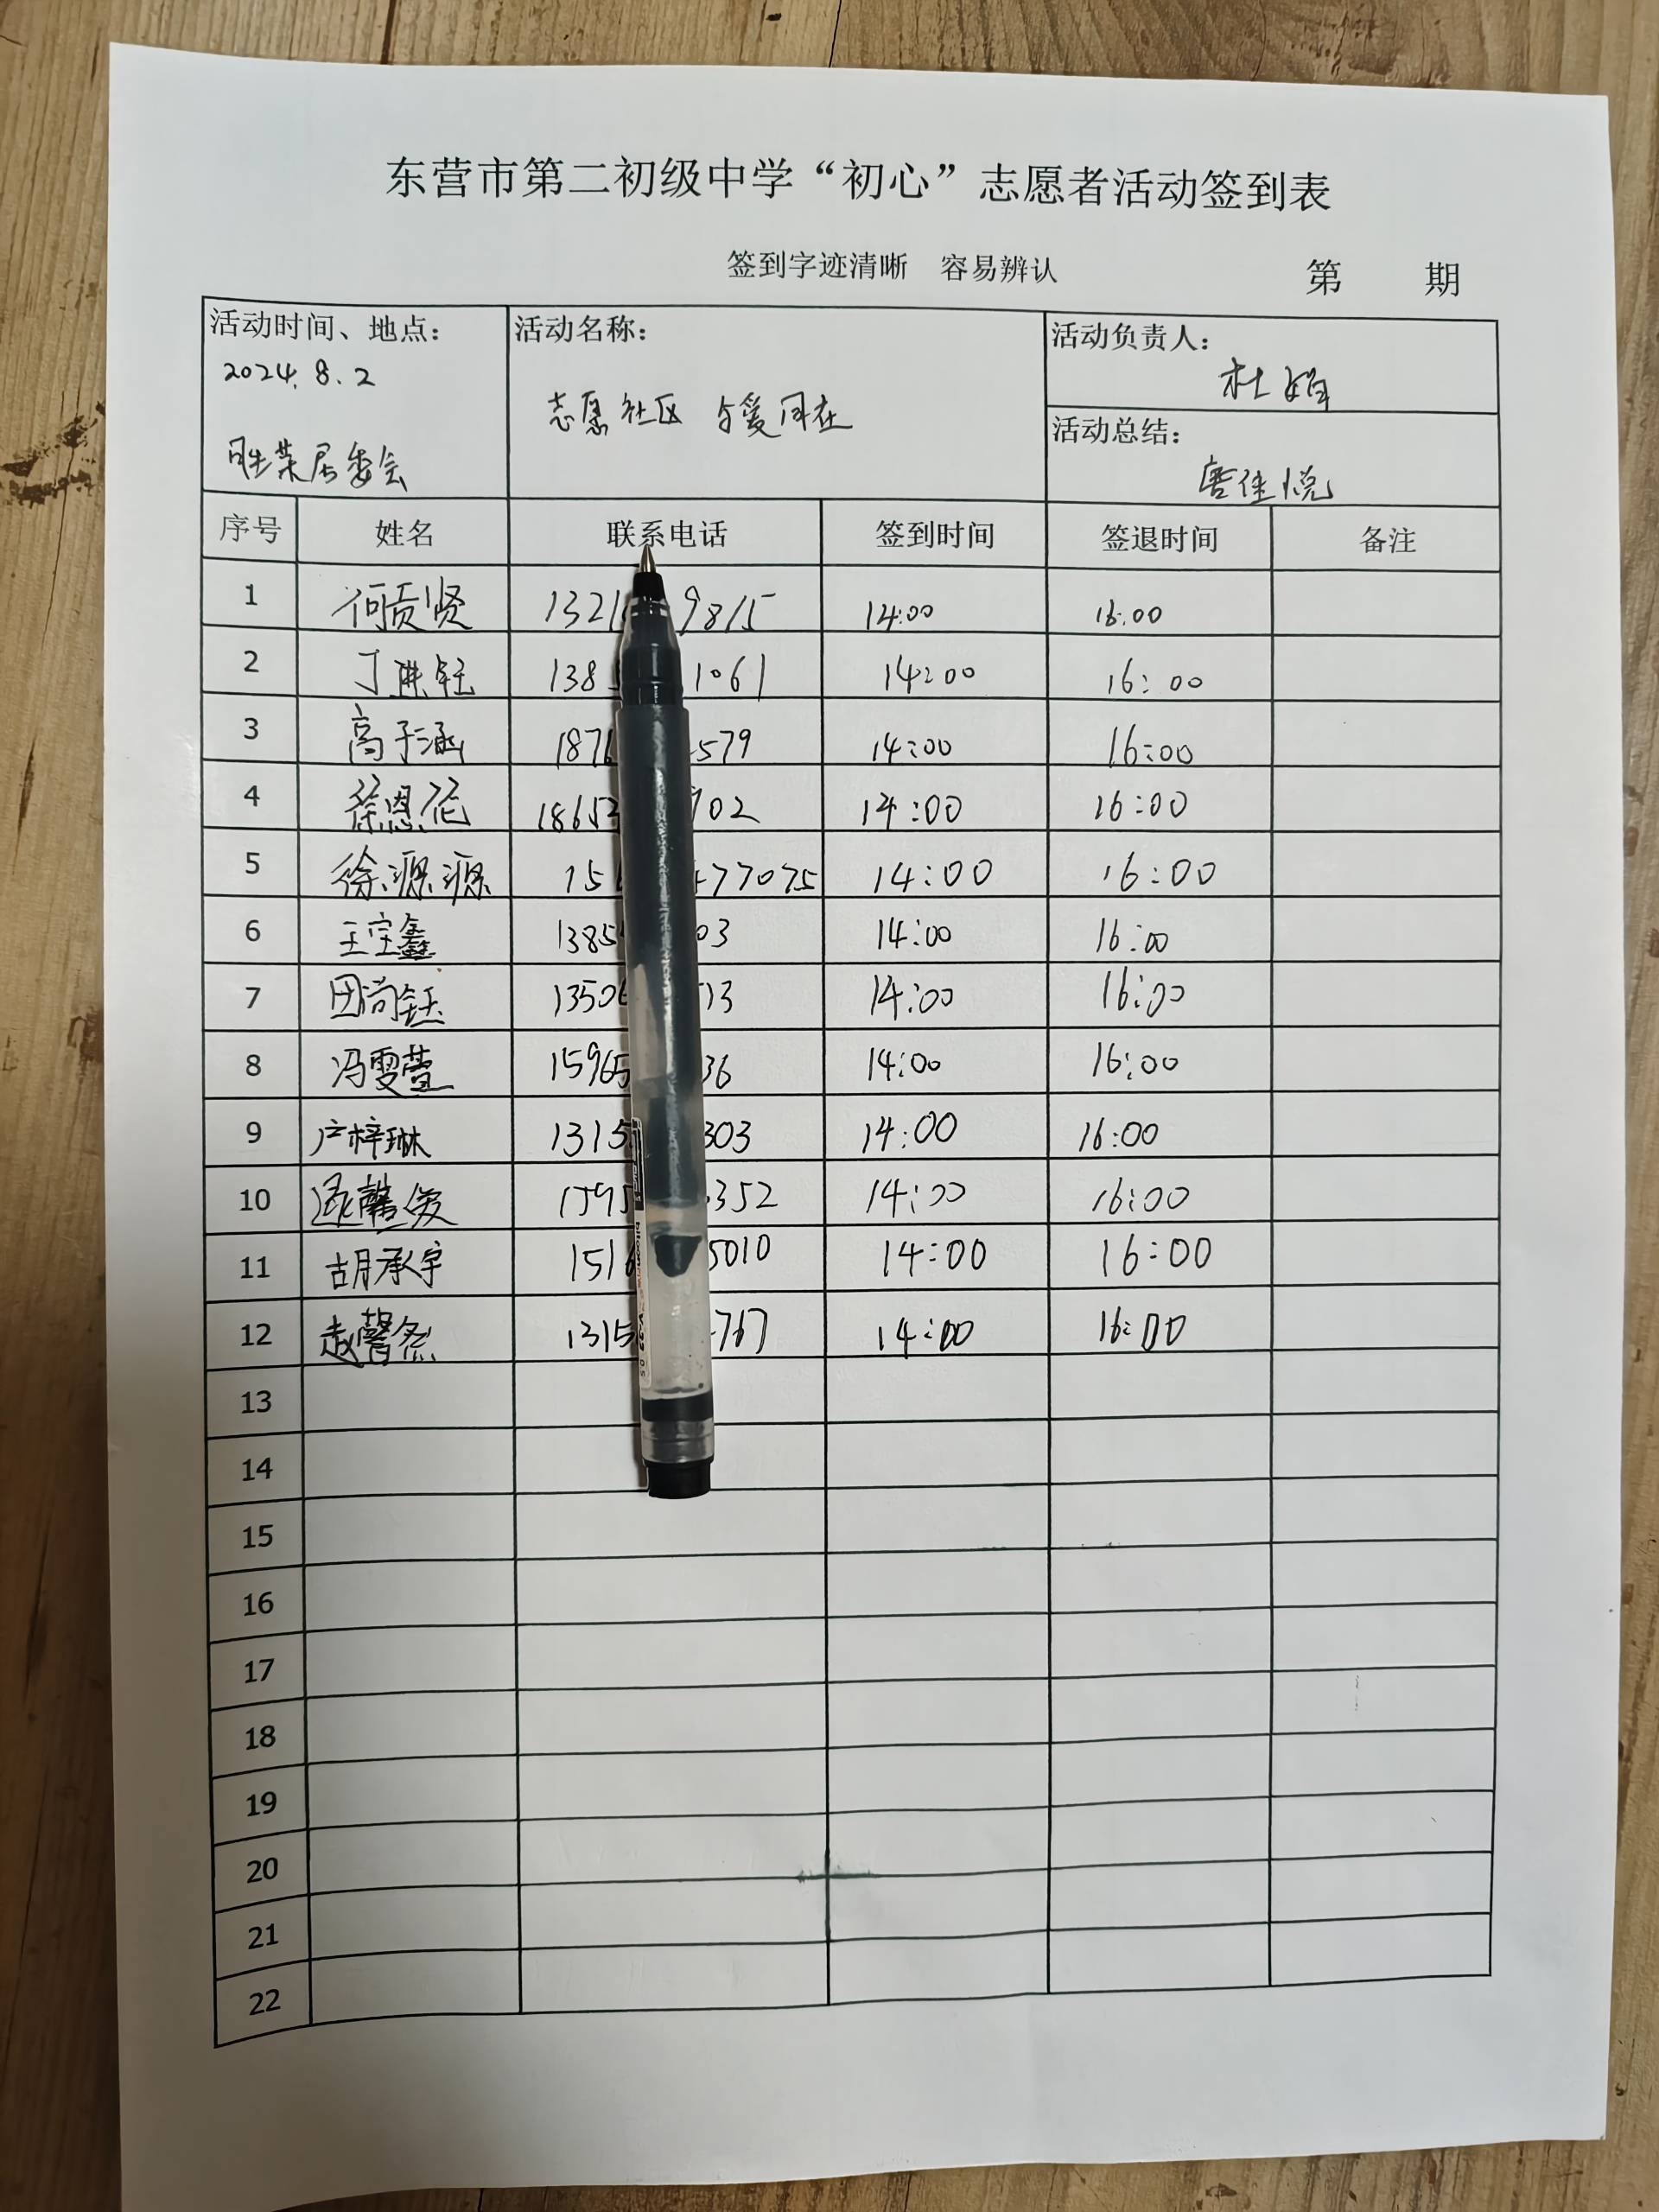 东营市第二初级中学“初心”志愿者活动签到表
签到字迹清晰 容易辨认 第 期
活动时间、地点： 活动名称： 活动负责人：
2024.8.2 杜娟
志愿社区 与爱同在
活动总结：
胜荣居委会 唐佳悦
序号 姓名 联系电话 签到时间 签退时间 备注
1 何贡贤 1321 9815 14:00 16:00
2 丁 钰 138 1061 14:00 16:00
3 高子涵 187 579 14:00 16:00
4 徐恩伦 1865 702 14:00 16:00
5 徐源源 15 77075 14:00 16:00
6 王宝鑫 1385 03 14:00 16:00
7 田尚钰 1350 13 14:00 16:00
8 冯雯萱 15965 36 14:00 16:00
9 卢梓琳 1315 303 14:00 16:00
10 馨 1595 352 14:00 16:00
11 胡承宇 151 5010 14:00 16:00
12 赵馨然 1315 767 14:00 16:00
13
14
15
16
17
18
19
20
21
22